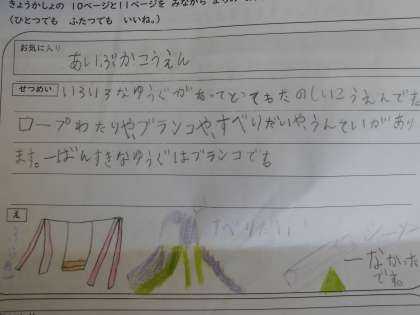 きょうかしょの 10ページと11ページを みながら
(ひとつでも ふたつでも いいね。)
お気に入り
あいぶかこうえん
せつめい
いろいろなゆうぐがあってとてもたのしいこうえんです。
ロープわたりや、ブランコや、すべりだいや、うんていがあり
ます。一ばんすきなゆうぐはブランコでも
え
すべりだい
シーソー
なかった
です。